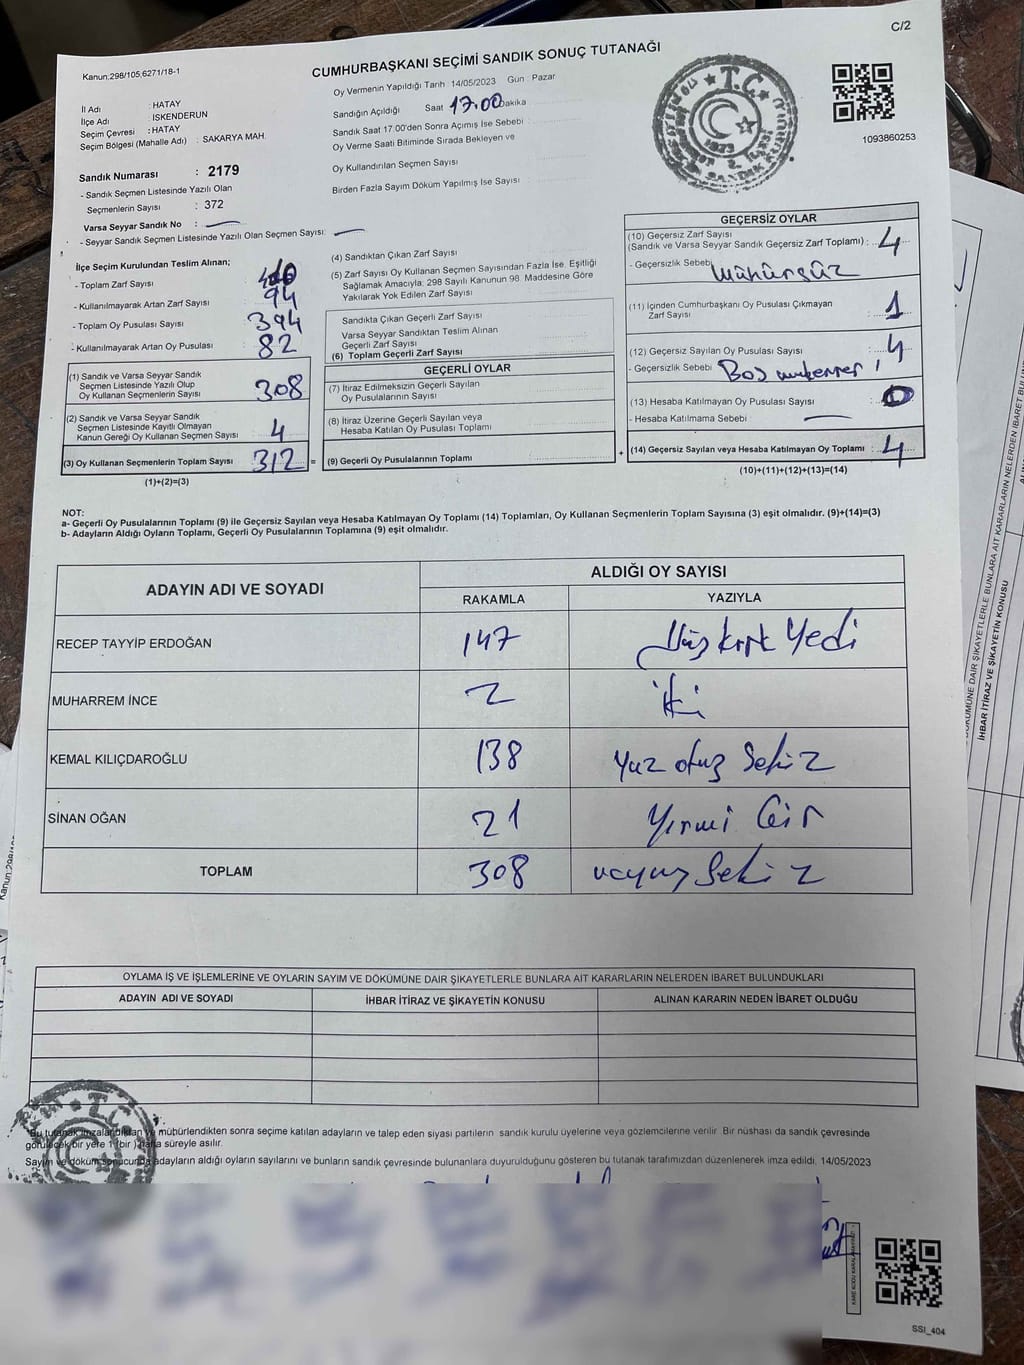 C/2
Kanun:298/105,6271/18-1
CUMHURBAŞKANI SEÇİMİ SANDIK SONUÇ TUTANAĞI
İl Adı : HATAY
İlçe Adı : İSKENDERUN
Seçim Çevresi : HATAY
Seçim Bölgesi (Mahalle Adı) : SAKARYA MAH.
Sandık Numarası : 2179
- Sandık Seçmen Listesinde Yazılı Olan
Seçmenlerin Sayısı : 372
Varsa Seyyar Sandık No :
- Seyyar Sandık Seçmen Listesinde Yazılı Olan Seçmen Sayısı:
Oy Vermenin Yapıldığı Tarih : 14/05/2023 Gün : Pazar
Sandığın Açıldığı Saat 17.00 Dakika
Sandık Saat 17.00'den Sonra Açımış İse Sebebi :
Oy Verme Saati Bitiminde Sırada Bekleyen ve
Oy Kullandırılan Seçmen Sayısı
Birden Fazla Sayım Döküm Yapılmış İse Sayısı :
T.C.
1093860253
İlçe Seçim Kurulundan Teslim Alınan;
- Toplam Zarf Sayısı :
- Kullanılmayarak Artan Zarf Sayısı : 94
- Toplam Oy Pusulası Sayısı : 394
- Kullanılmayarak Artan Oy Pusulası : 82
(1) Sandık ve Varsa Seyyar Sandık
Seçmen Listesinde Yazılı Olup
Oy Kullanan Seçmenlerin Sayısı 308
(2) Sandık ve Varsa Seyyar Sandık
Seçmen Listesinde Kayıtlı Olmayan
Kanun Gereği Oy Kullanan Seçmen Sayısı 4
(3) Oy Kullanan Seçmenlerin Toplam Sayısı 312 =
(1)+(2)=(3)
(4) Sandıktan Çıkan Zarf Sayısı
(5) Zarf Sayısı Oy Kullanan Seçmen Sayısından Fazla İse, Eşitliği
Sağlamak Amacıyla; 298 Sayılı Kanunun 98. Maddesine Göre
Yakılarak Yok Edilen Zarf Sayısı
Sandıkta Çıkan Geçerli Zarf Sayısı
Varsa Seyyar Sandıktan Teslim Alınan
Geçerli Zarf Sayısı
(6) Toplam Geçerli Zarf Sayısı
GEÇERLİ OYLAR
(7) İtiraz Edilmeksizin Geçerli Sayılan
Oy Pusulalarının Sayısı
(8) İtiraz Üzerine Geçerli Sayılan veya
Hesaba Katılan Oy Pusulası Toplamı
(9) Geçerli Oy Pusulalarının Toplamı +
GEÇERSİZ OYLAR
(10) Geçersiz Zarf Sayısı
(Sandık ve Varsa Seyyar Sandık Geçersiz Zarf Toplamı) : 4
- Geçersizlik Sebebi : Mühürsüz
(11) İçinden Cumhurbaşkanı Oy Pusulası Çıkmayan
Zarf Sayısı : 1
(12) Geçersiz Sayılan Oy Pusulası Sayısı : 4
- Geçersizlik Sebebi : Boş mükerrer
(13) Hesaba Katılmayan Oy Pusulası Sayısı : 0
- Hesaba Katılmama Sebebi :
(14) Geçersiz Sayılan veya Hesaba Katılmayan Oy Toplamı : 4
(10)+(11)+(12)+(13)=(14)
NOT:
a- Geçerli Oy Pusulalarının Toplamı (9) ile Geçersiz Sayılan veya Hesaba Katılmayan Oy Toplamı (14) Toplamları, Oy Kullanan Seçmenlerin Toplam Sayısına (3) eşit olmalıdır. (9)+(14)=(3)
b- Adayların Aldığı Oyların Toplamı, Geçerli Oy Pusulalarının Toplamına (9) eşit olmalıdır.
ADAYIN ADI VE SOYADI
ALDIĞI OY SAYISI
RAKAMLA YAZIYLA
RECEP TAYYİP ERDOĞAN 147 Yüz kırk Yedi
MUHARREM İNCE 2 iki
KEMAL KILIÇDAROĞLU 138 Yüz otuz Sekiz
SİNAN OĞAN 21 Yirmi bir
TOPLAM 308 üçyüz Sekiz
OYLAMA İŞ VE İŞLEMLERİNE VE OYLARIN SAYIM VE DÖKÜMÜNE DAİR ŞİKAYETLERLE BUNLARA AİT KARARLARIN NELERDEN İBARET BULUNDUKLARI
ADAYIN ADI VE SOYADI İHBAR İTİRAZ VE ŞİKAYETİN KONUSU ALINAN KARARIN NEDEN İBARET OLDUĞU
Bu tutanak imzalandıktan ve mühürlendikten sonra seçime katılan adayların ve talep eden siyasi partilerin sandık kurulu üyelerine veya gözlemcilerine verilir. Bir nüshası da sandık çevresinde
görülecek bir yere 1 (bir) hafta süreyle asılır.
Sayım ve döküm sonucunda adayların aldığı oyların sayılarını ve bunların sandık çevresinde bulunanlara duyurulduğunu gösteren bu tutanak tarafımızdan düzenlenerek imza edildi. 14/05/2023
T.C.
SSI_404
İHBAR İTİRAZ VE ŞİKAYETİN KONUSU
Kanun:298/